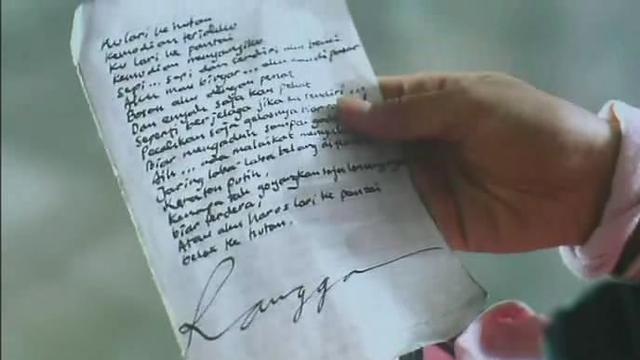 Ku lari ke hutan
Kemudian teriakku
Ku lari ke pantai
Kemudian menyanyiku
Sepi... sepi dan sendiri aku benci
Aku mau bingar... aku mau di pasar
Bosan aku dengan penat
Dan enyah saja kau pekat
Seperti berjelaga jika ku sendiri
Pecahkan saja gelasnya biar
Biar mengaduh sampai
Aih... ada malaikat
Jaring laba-laba belang di
Keraton putih
Kenapa tak goyangkan saja loncengnya
biar terdera,
Atau aku harus lari ke pantai
belok ke hutan.
Rangga